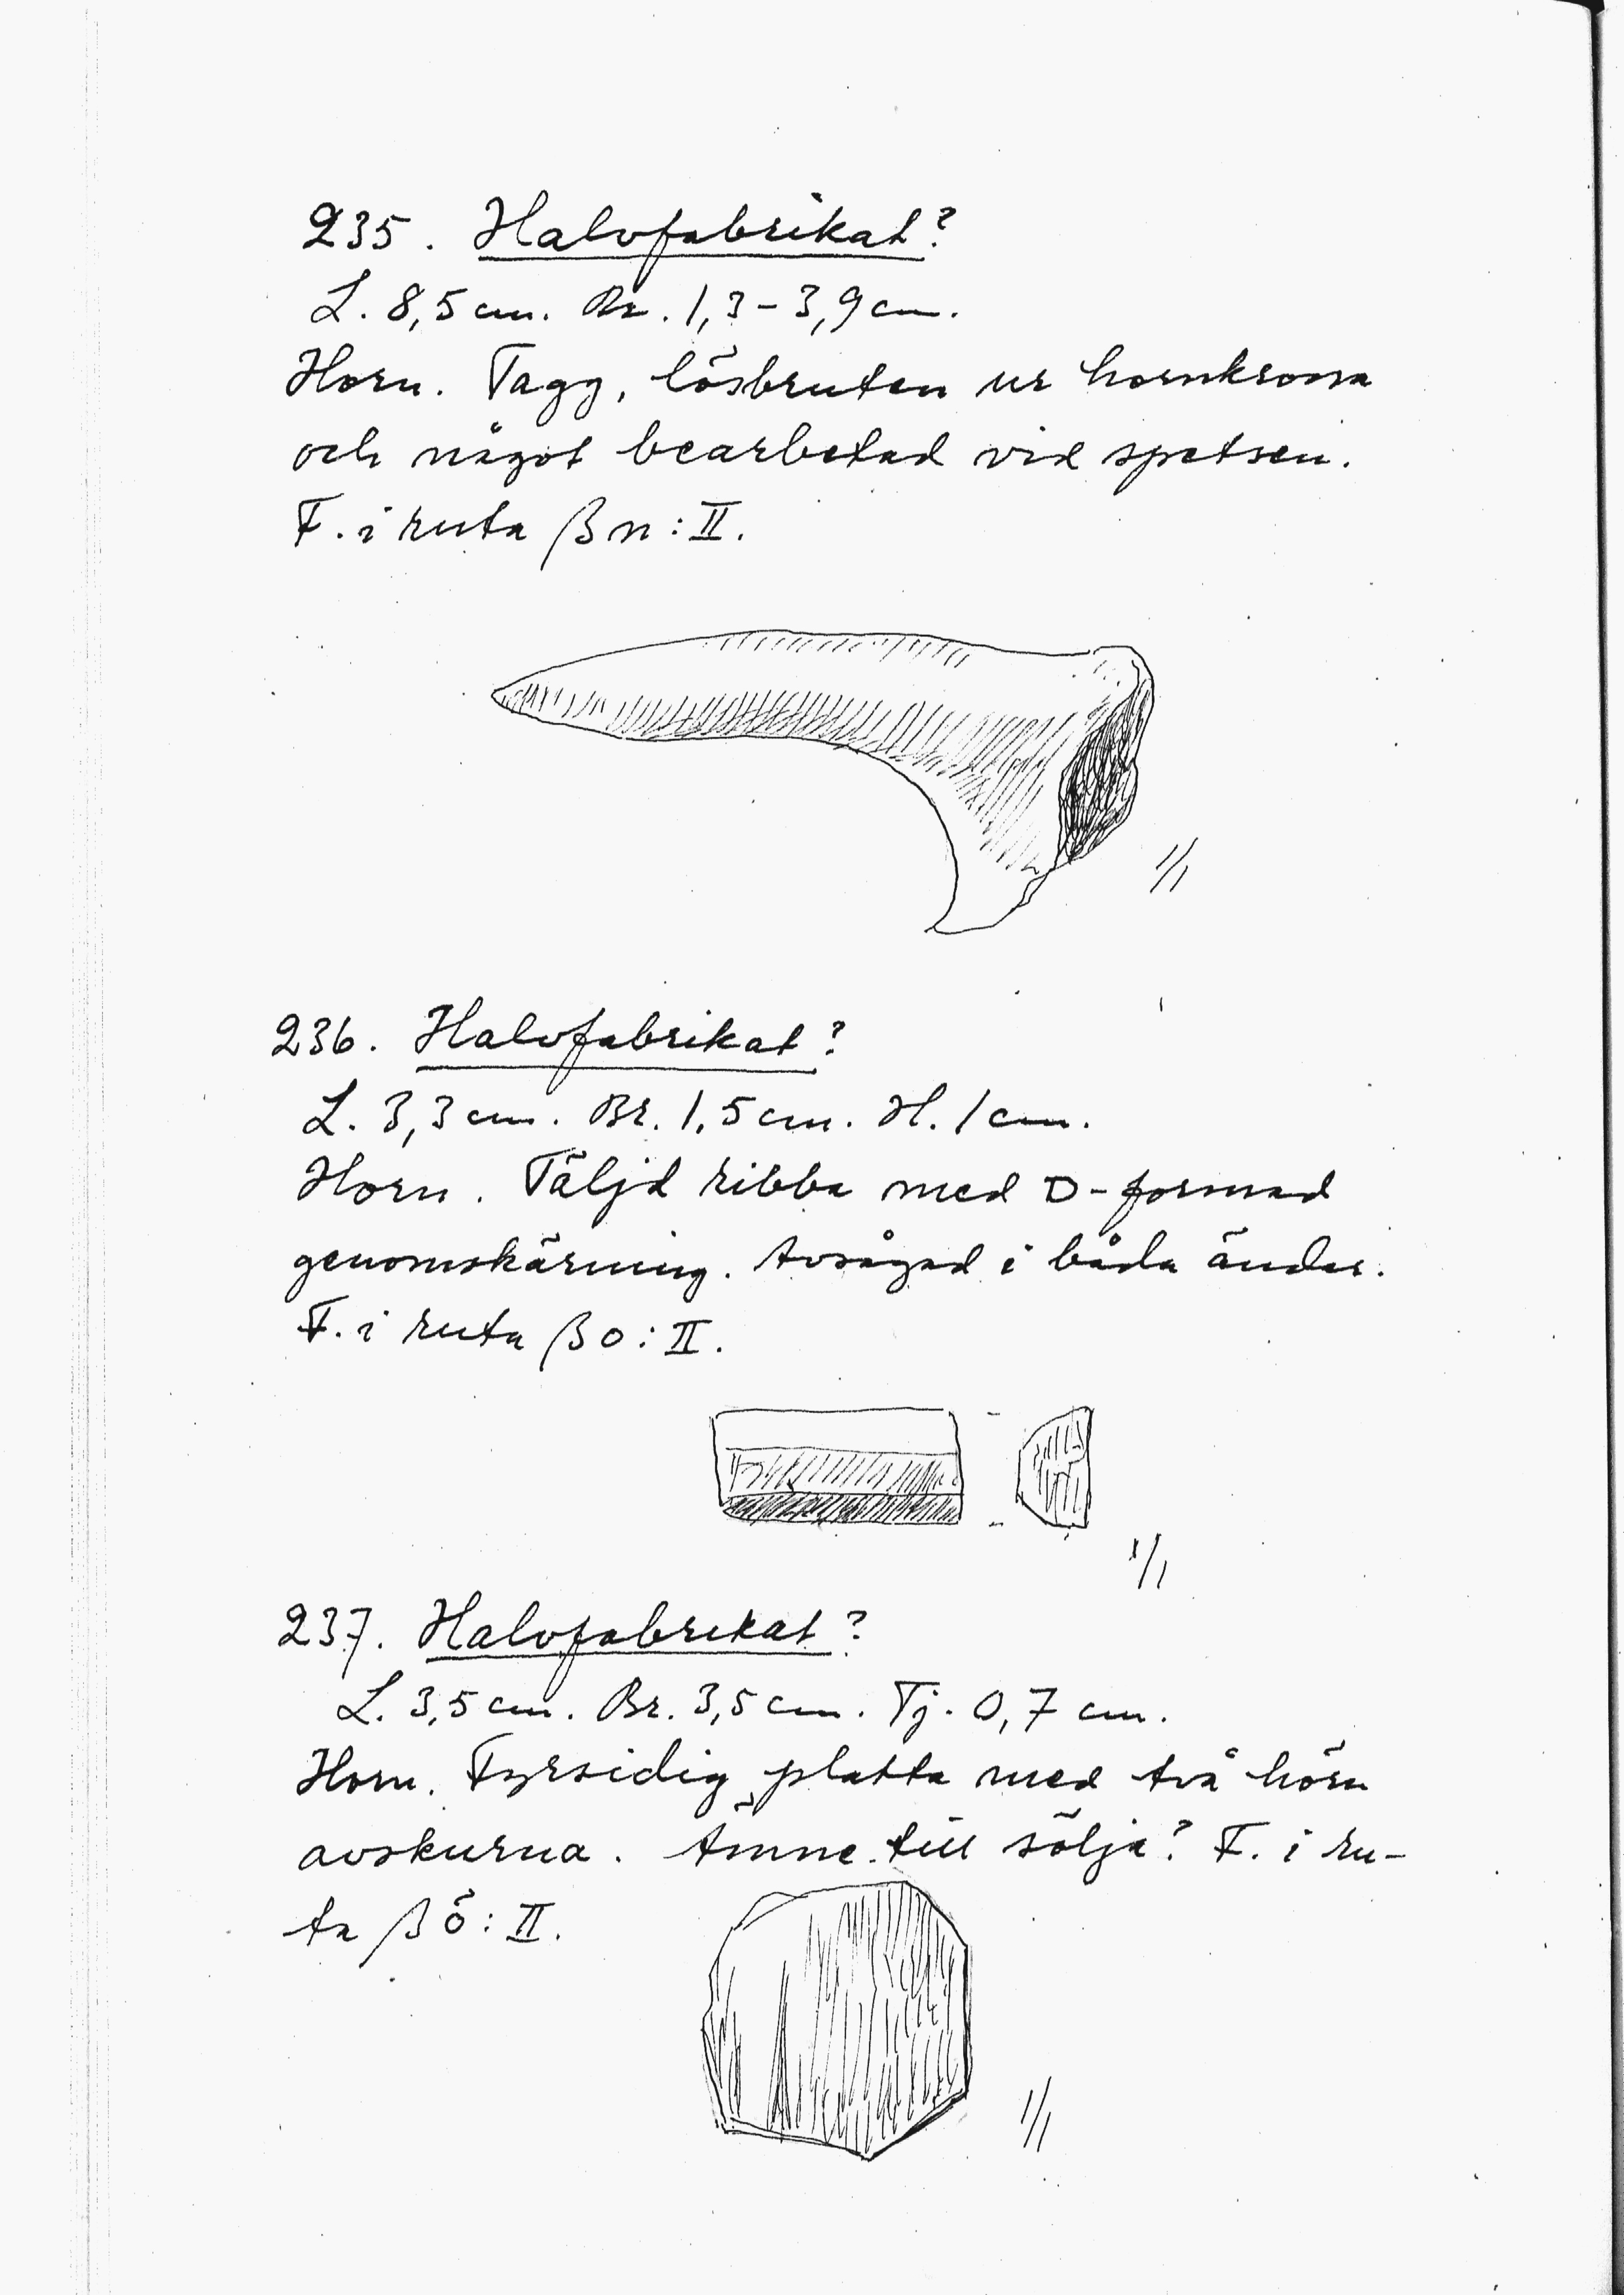 235. Halvfabrikat?
L. 8,5 cm. Br. 1,3-3,9 cm.
Horn. Tagg, lösbruten ur hornkrona
och något bearbetad vid spetsen.
F. i ruta βn:II.
1/1
236. Halvfabrikat?
L. 3,3 cm. Br. 1,5 cm. H. 1 cm.
Horn. Täljd ribba med D-formad
genomskärning. Avsågad i båda ändar.
F. i ruta βo:II.
1/1
237. Halvfabrikat?
L. 3,5 cm. Br. 3,5 cm. Tj. 0,7 cm.
Horn. Fyrsidig platta med två hörn
avskurna. Ämne till sölja? F. i ru-
ta βö:II.
1/1